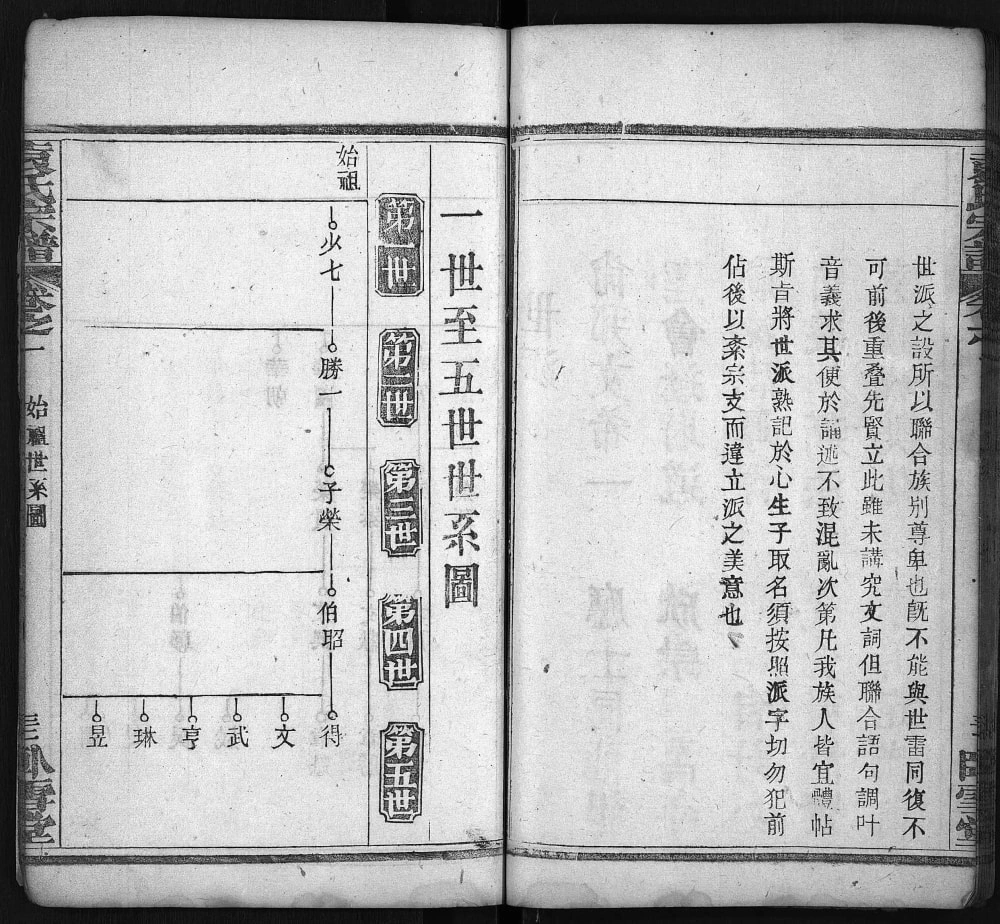 世派之設所以聯合族別尊卑也旣不能與世雷同復不
可前後重叠先賢立此雖未講究文詞但聯合語句調叶
音義求其便於誦述不致混亂次第凡我族人皆宜體帖
斯㫖將世派熟記於心生子取名須按照派字切勿犯前
佔後以紊宗支而違立派之美意也
一世至五世世系圖
第一世
第二世
第三世
第四世
第五世
始祖
少七
勝一
子榮
伯昭
得
文
武
亨
琳
昱
袁氏宗譜
卷之一
始祖世系圖
三
臥雪堂